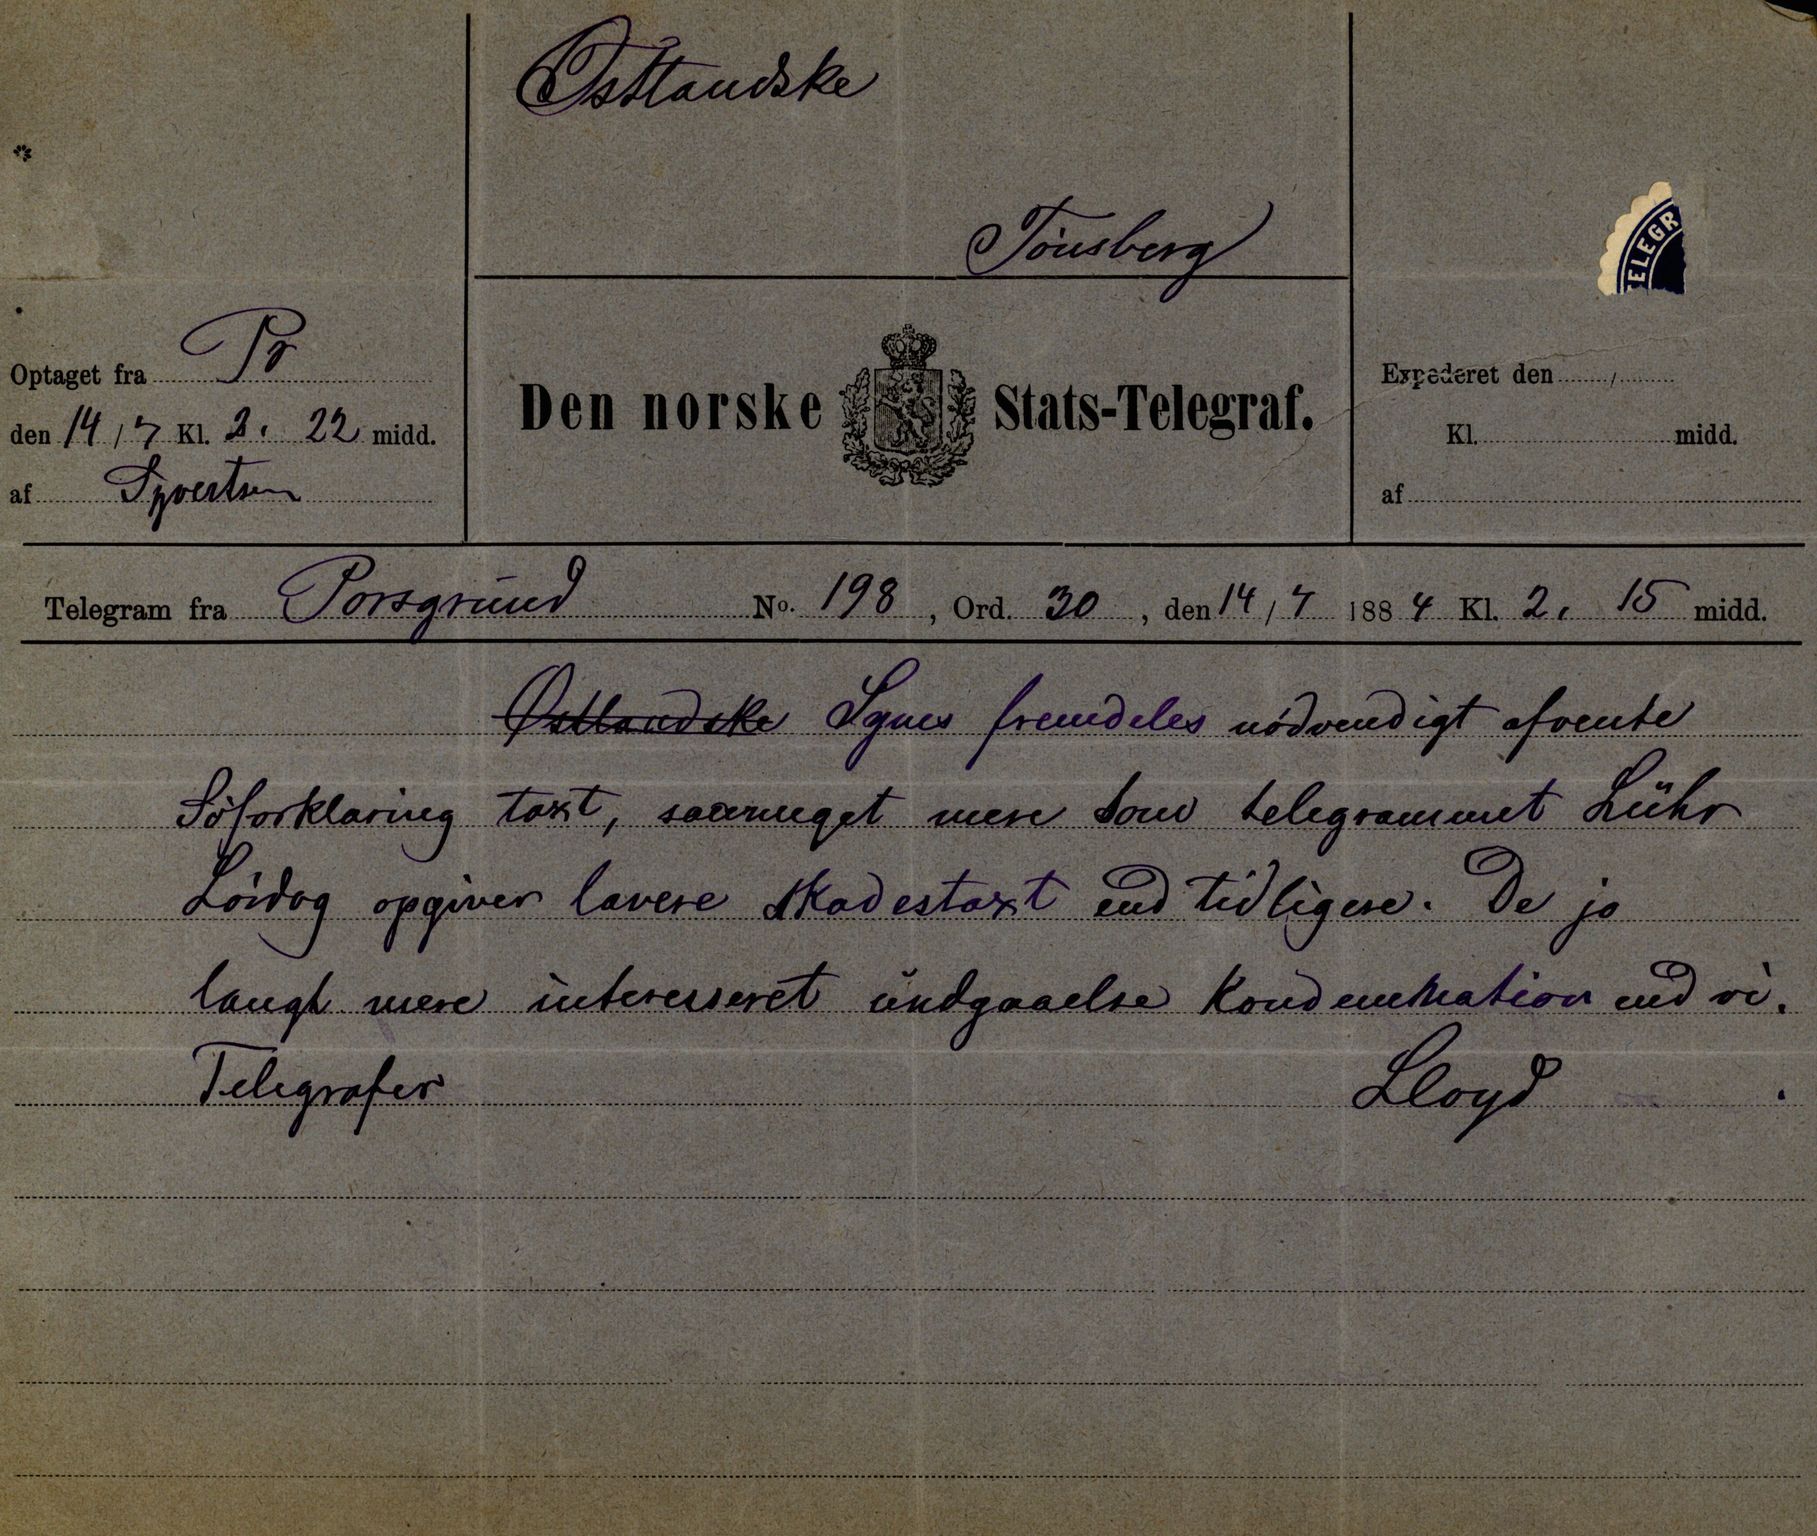 Østlandske
Tönsberg
TELEGR
Optaget fra Pr
den 14/7 Kl. 2. 22 midd.
af Syvertsen
Den norske Stats-Telegraf.
Expederet den /
Kl. midd.
af
Telegram fra Porsgrund No. 198, Ord. 30, den 14/7 1884 Kl. 2. 15 midd.
Østlandske Synes fremdeles nödvendigt afvente
Söforklaring taxt, saameget mere som telegrammet Lühr
Löidag opgiver lavere skadestaxt end tidligere. De jo
langt mere interesseret undgaaelse Kondemnation end vi.
Telegrafer Lloyd